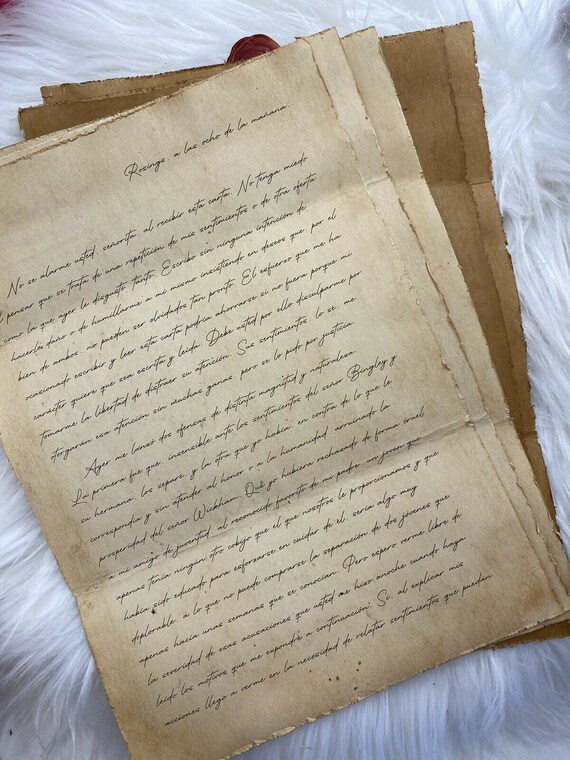 Rosings, a las ocho de la mañana
No se alarme usted, señorita, al recibir esta carta. No tenga miedo
pensar que se trata de una repetición de mis sentimientos o de otra oferta
como la que ayer le disgustó tanto. Escribo sin ninguna intención de
hacerle daño o de humillarme a mí mismo insistiendo en deseos que, por el
bien de ambos, no pueden ser olvidados tan pronto. El esfuerzo que me ha
ocasionado escribir y leer esta carta podría ahorrarse si no fuera porque mi
carácter quiere que sea escrita y leída. Debe usted por ello disculparme por
tomarme la libertad de distraer su atención. Sus sentimientos, lo sé, me
otorgarán esa atención sin muchas ganas, pero se lo pido por justicia.
Ayer me lanzó dos ofensas de distinta magnitud y naturaleza.
La primera fue que, insensible ante los sentimientos del señor Bingley y
su hermana, los separé, y la otra que yo había, en contra de lo que le
correspondía y sin atender al honor o a la humanidad, arruinado la
prosperidad del señor Wickham. Que yo hubiera rechazado de forma cruel
a mi amigo de juventud, al reconocido favorito de mi padre, un joven que
apenas tenía ningún otro cobijo que el que nosotros le proporcionamos y que
había sido educado para esforzarse en cuidar de él, sería algo muy
deplorable, a lo que no puede compararse la separación de dos jóvenes que
apenas hacía unas semanas que se conocían. Pero espero verme libre de
la severidad de esas acusaciones que usted me hizo anoche cuando haya
leído los motivos que me expondré a continuación. Si, al explicar mis
acciones llego a verme en la necesidad de relatar sentimientos que puedan